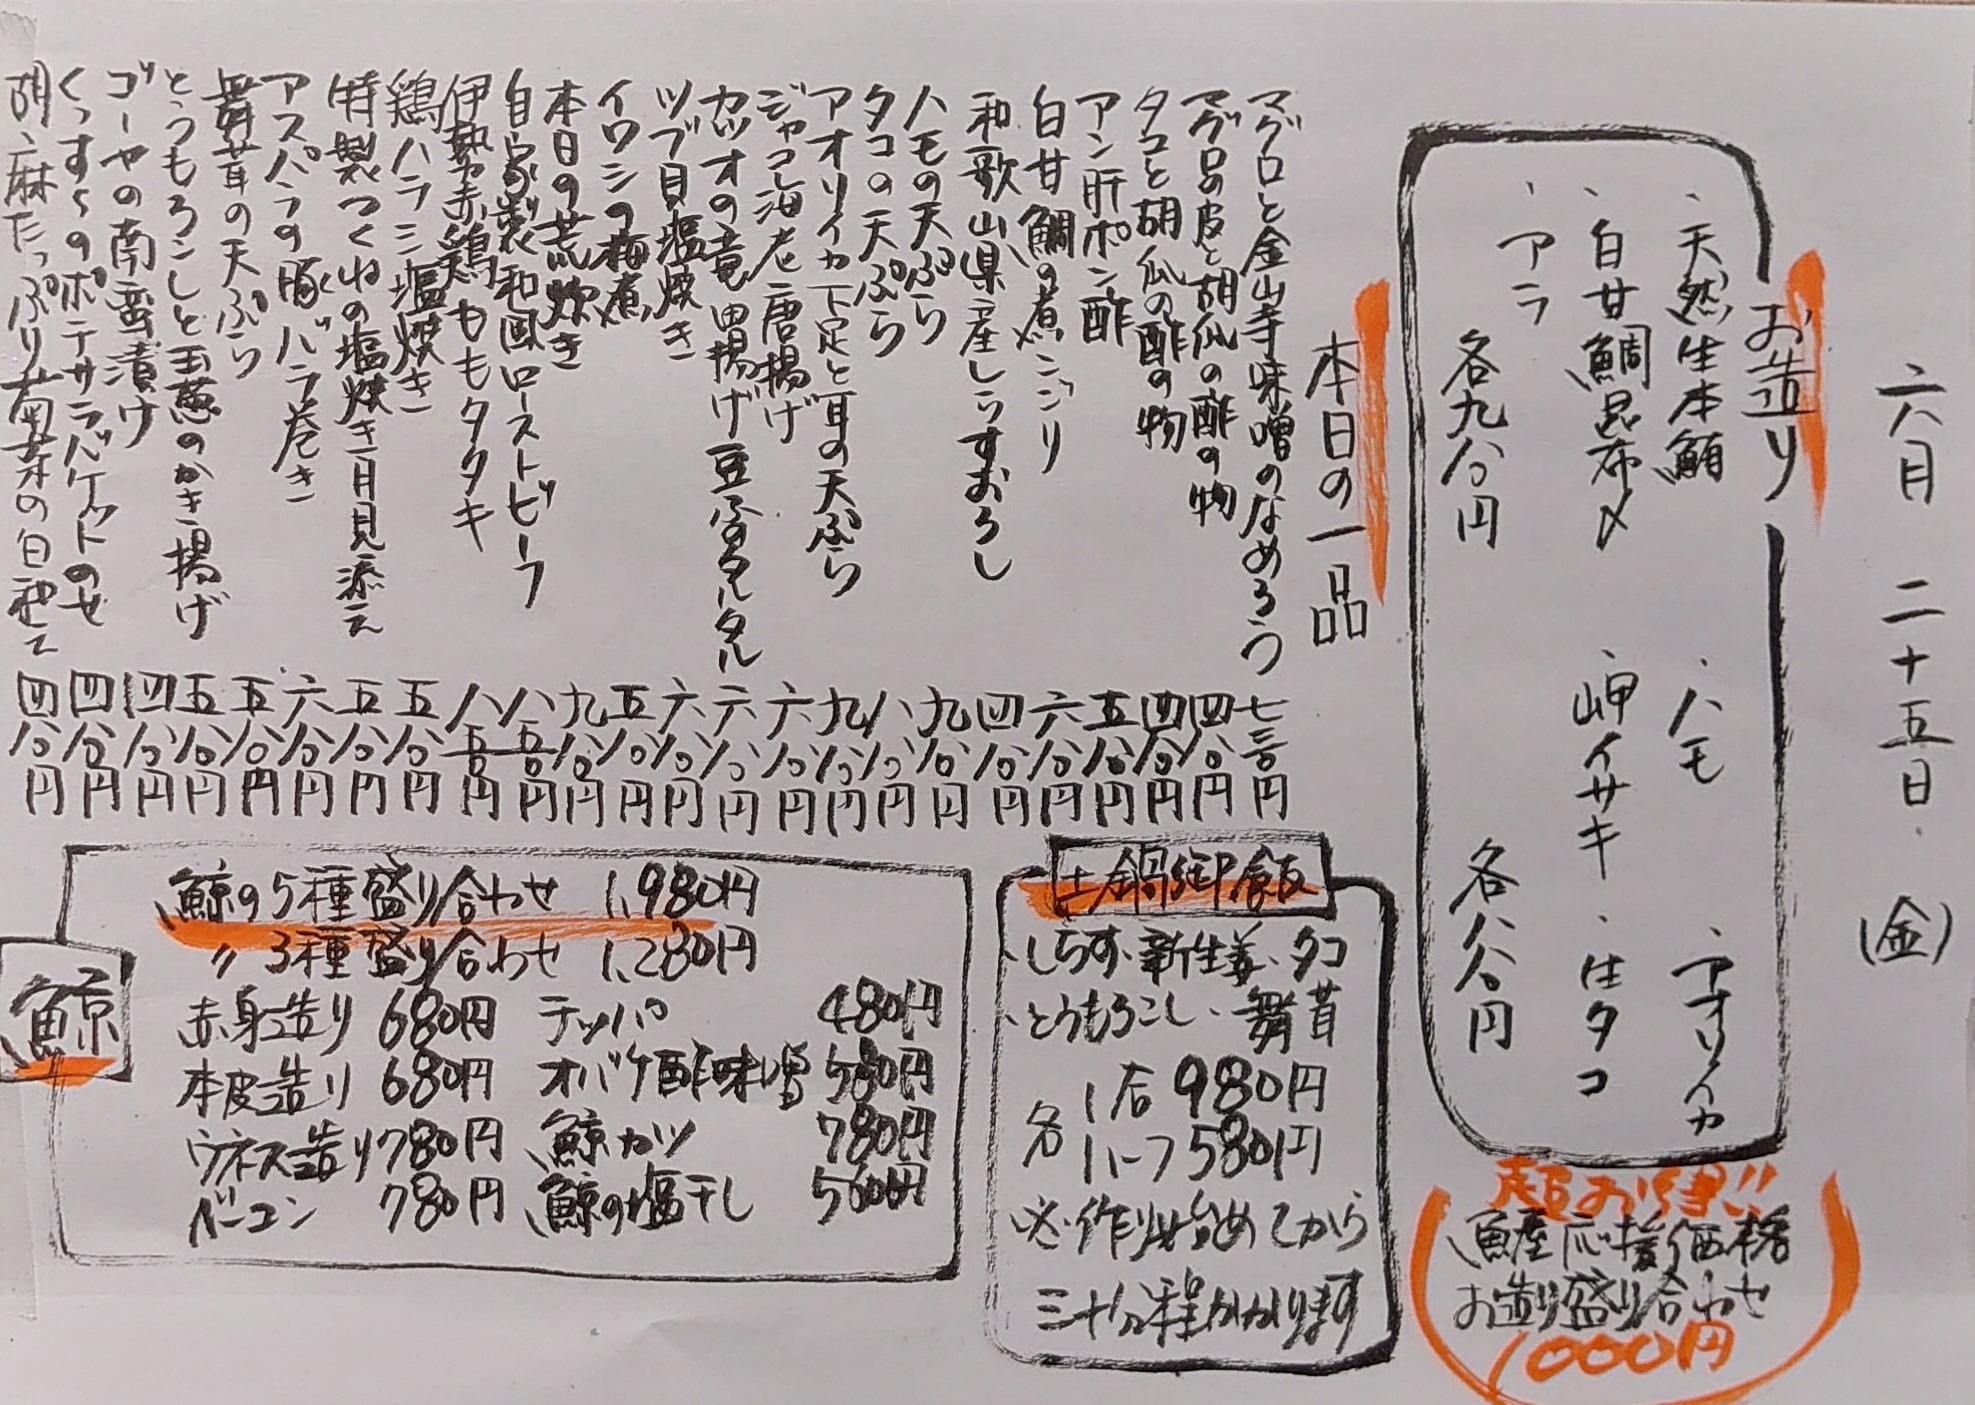 六月二十五日(金)
お造り
・天然生本鮪 ・ハモ ・アオリイカ
・白甘鯛昆布〆 ・岬イサキ ・生タコ
・アラ
各九八〇円 各八八〇円
超お得!!
魚産応援価格
お造り盛り合わせ
1000円
本日の一品
マグロと金山寺味噌のなめろう 七三〇円
マグロの皮と胡瓜の酢の物 四八〇円
タコと胡瓜の酢の物 四八〇円
アン肝ポン酢 五八〇円
白甘鯛の煮こごり 六八〇円
和歌山県産しらすおろし 四八〇円
ハモの天ぷら 九八〇円
タコの天ぷら 八八〇円
アオリイカ下足と耳の天ぷら 九八〇円
ジャコ海老唐揚げ 六八〇円
カツオの竜田揚げ豆腐タルタル 六八〇円
ツブ貝塩焼き 六八〇円
イワシの梅煮 五八〇円
本日の荒炊き 九八〇円
自家製和風ローストビーフ 八五〇円
伊勢赤鶏ももタタキ 八五〇円
鶏ハラミ塩焼き 五八〇円
特製つくねの塩焼き月見添え 五八〇円
アスパラの豚バラ巻き 六八〇円
舞茸の天ぷら 五八〇円
とうもろこしと玉葱のかき揚げ 五八〇円
ゴーヤの南蛮漬け 四八〇円
ポテサラバケットのせ 四八〇円
胡麻たっぷり菊菜の白和え 四八〇円
土鍋御飯
・しらす・新生姜・タコ
・とうもろこし・舞茸
各 1合 980円
ハーフ 580円
※作り始めてから
三十分程かかります
鯨
鯨の5種盛り合わせ 1,980円
〃 3種盛り合わせ 1,280円
赤身造り 680円 テッパ 480円
本皮造り 680円 オバケ酢味噌 580円
ウネス造り 780円 鯨カツ 780円
ベーコン 780円 鯨の塩干し 円